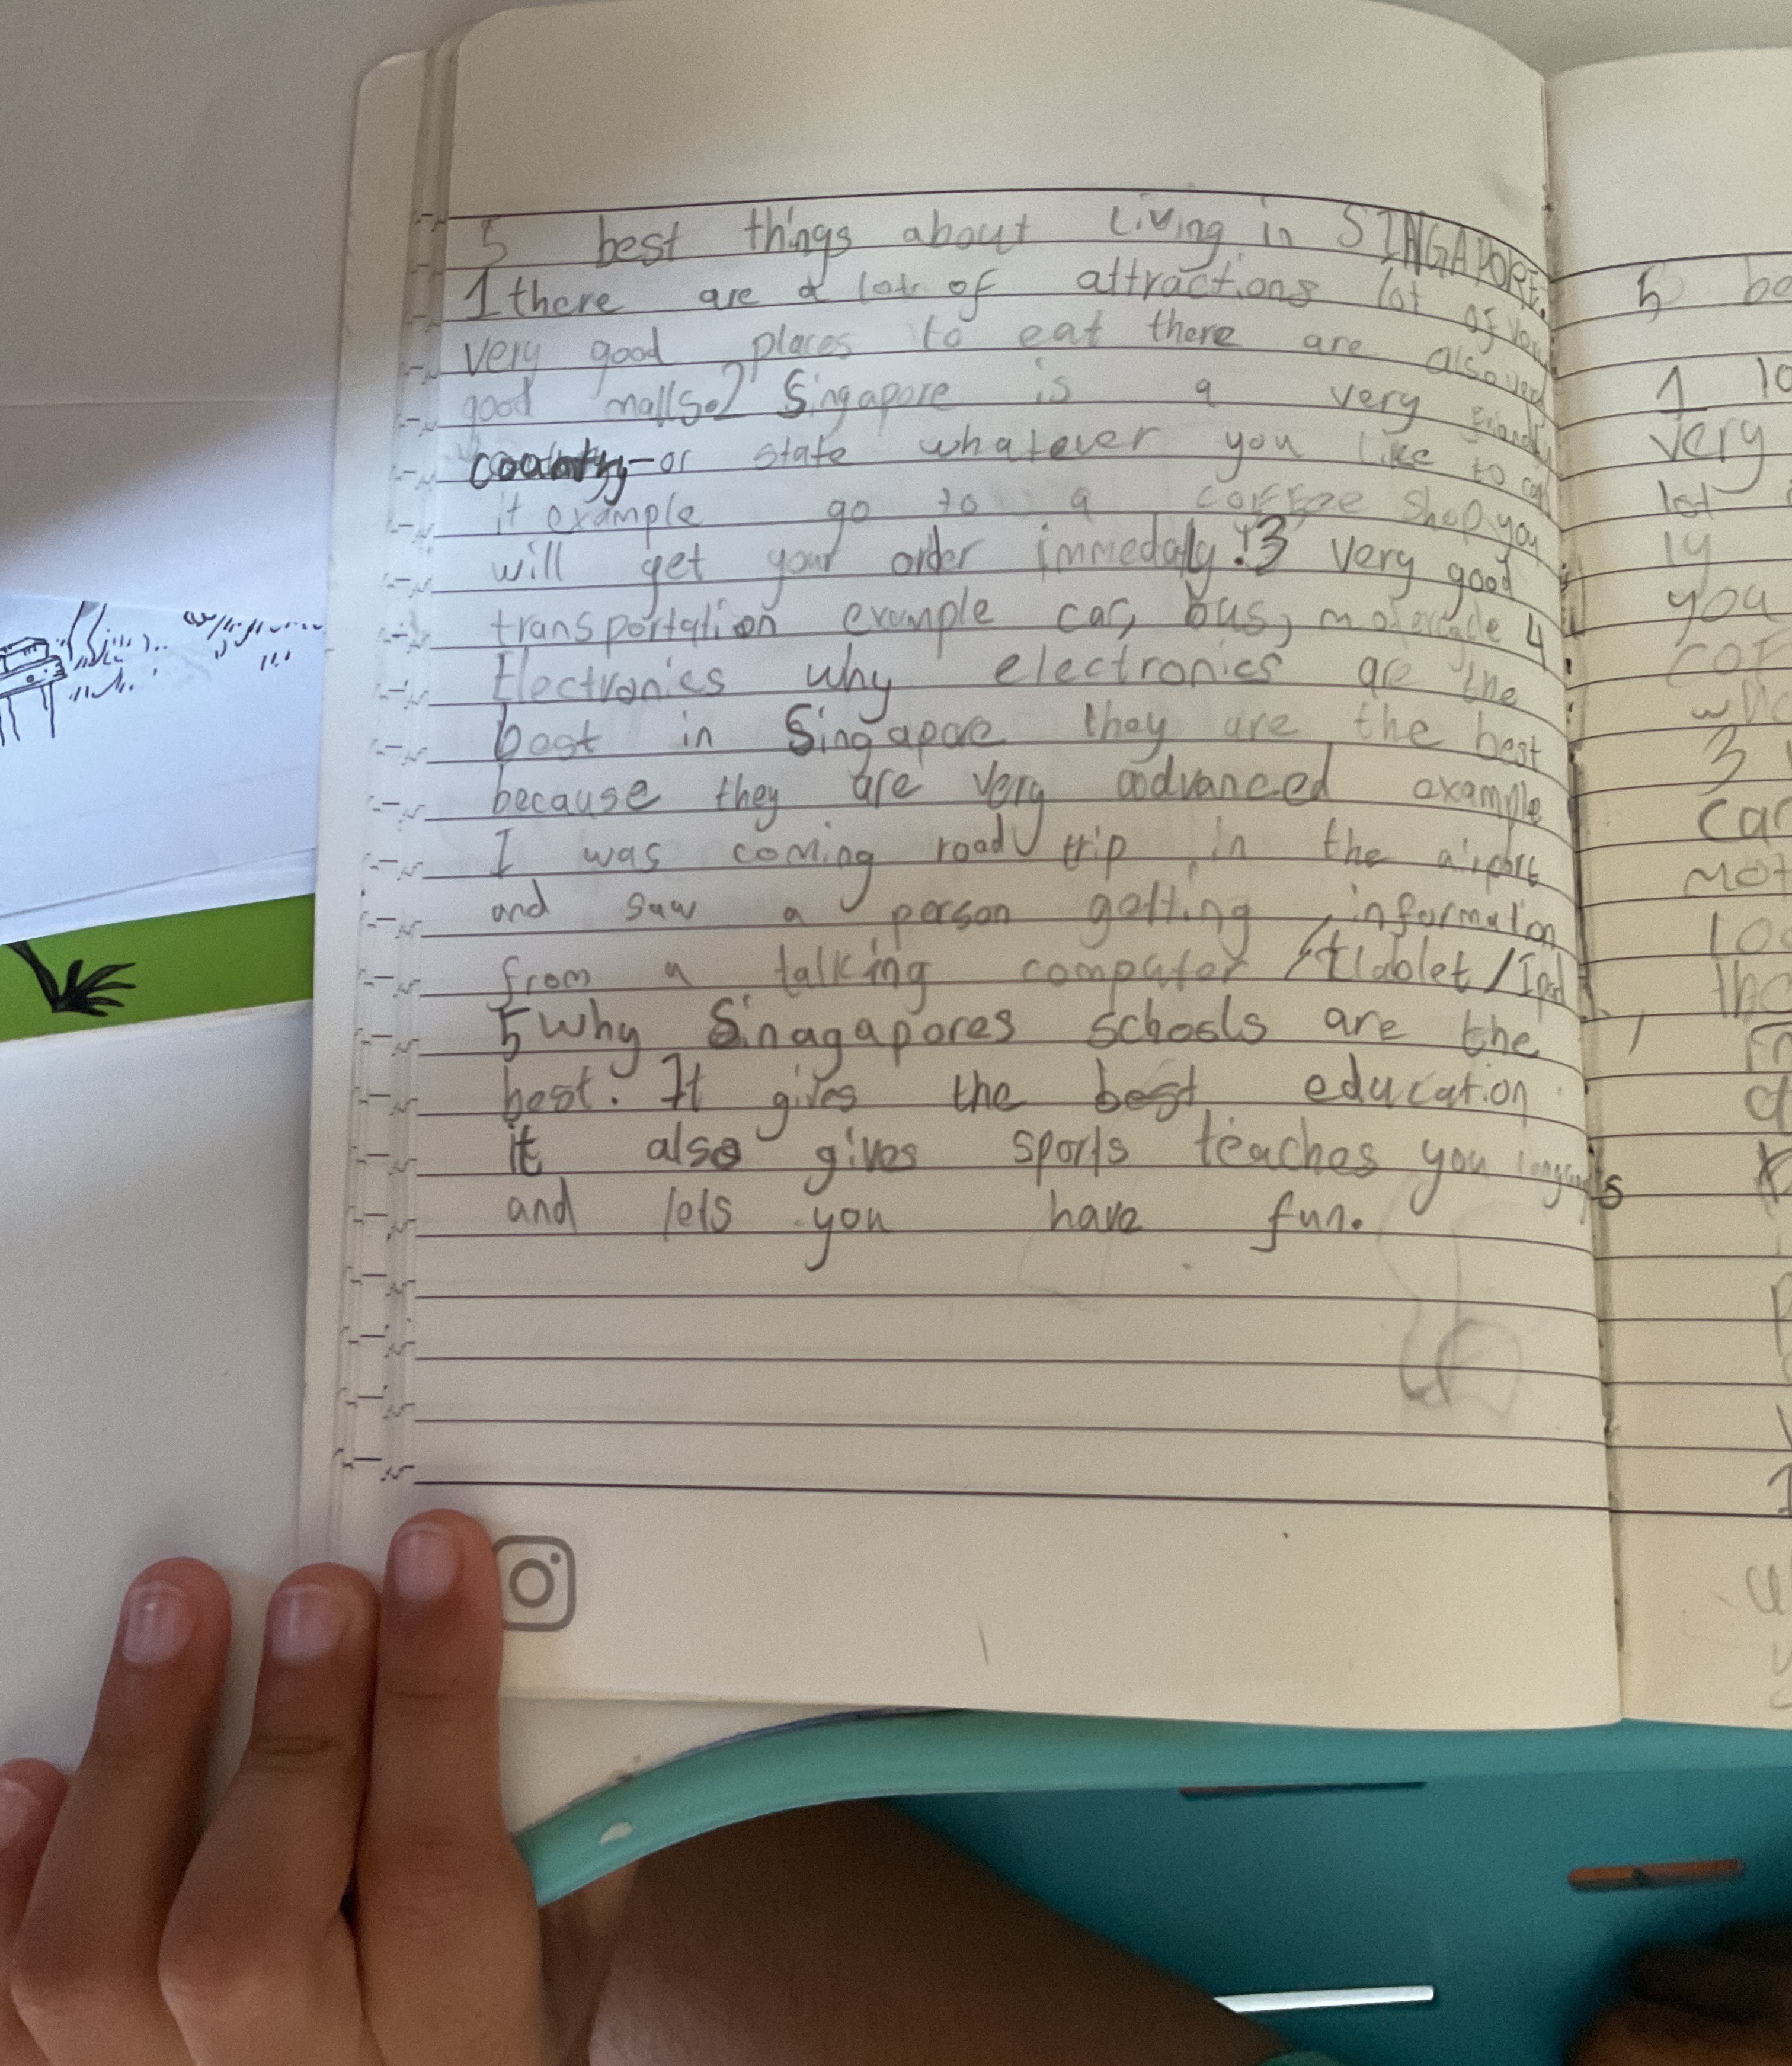 5 best things about Living in SINGAPORE.
1 there are a lot of attractions lot of very
very good places to eat there are also very
good malls. 2 Singapore is a very friendly
country or state whatever you like to call
it example go to a coffee shop you
will get your order immedatly! 3 Very good
transportation example car, bus, motercycle 4
Electronics why electronics are the
best in Singapore they are the best
because they are very advanced example
I was coming road trip in the airport
and saw a person getting information
from a talking computer / tablet / Ipad
5 why Sinagapores schools are the
best. It gives the best education
it also gives sports teaches you
and lets you have fun.
5
1
very
lot
ly
you
3
car